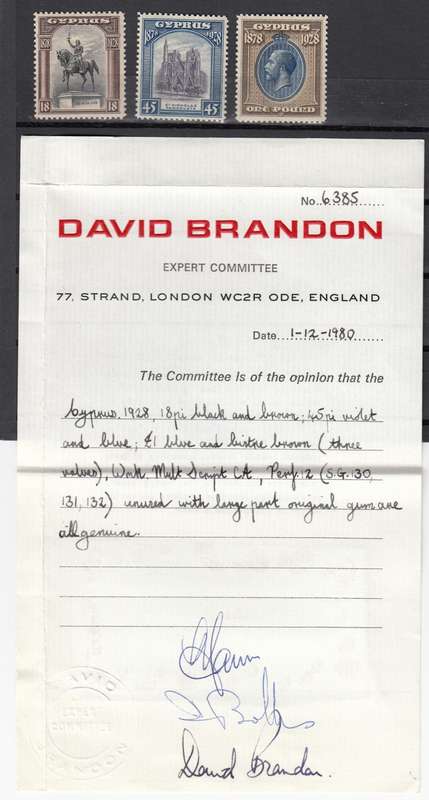 CYPRUS
1878 1928
18 18
CYPRUS
1878 1928
ST NICHOLAS
45 45
CYPRUS
1878 1928
ONE POUND
No. 6385
DAVID BRANDON
EXPERT COMMITTEE
77, STRAND, LONDON WC2R ODE, ENGLAND
Date 1-12-1980
The Committee is of the opinion that the
Cyprus, 1928, 18pi black and brown; 45pi violet
and blue; £1 blue and bistre brown (three
values), Wmk. Mult Script CA, Perf. 12 (S.G. 130,
131, 132) unused with large part original gum are
all genuine.
David Brandon.